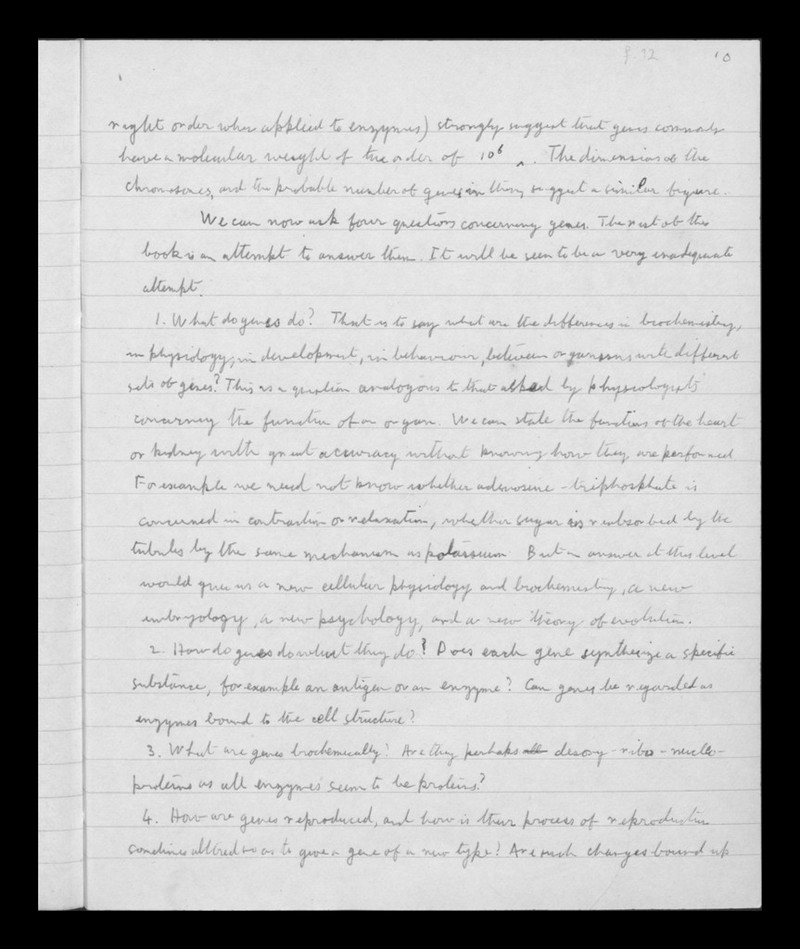 P. 12 10
right order when applied to enzymes) strongly suggest that genes commonly
have a molecular weight of the order of 10⁶ ‸. The dimensions of the
chromosomes, and the probable number of genes in them, suggest a similar figure.
We can now ask four questions concerning genes. The rest of this
book is an attempt to answer them. It will be seen to be a very inadequate
attempt.
1. What do genes do? That is to say what are the differences in biochemistry,
in physiology, in development, in behaviour, between organisms with different
sets of genes? This is a question analogous to that asked by physiologists
concerning the function of an organ. We can state the functions of the heart
or kidney with great accuracy without knowing how they are performed
For example we need not know whether adenosine-triphosphate is
concerned in contraction or relaxation, whether sugar is reabsorbed by the
tubules by the same mechanism as potassium But an answer at this level
would give us a new cellular physiology and biochemistry, a new
embryology, a new psychology, and a new theory of evolution.
2. How do genes do what they do? Does each gene synthesize a specific
substance, for example an antigen or an enzyme? Can genes be regarded as
enzymes bound to the cell structure?
3. What are genes biochemically? Are they perhaps all desoxy-ribo-nucleo-
proteins as all enzymes seem to be proteins?
4. How are genes reproduced, and how is their process of reproduction
sometimes altered so as to give a gene of a new type? Are such changes bound up